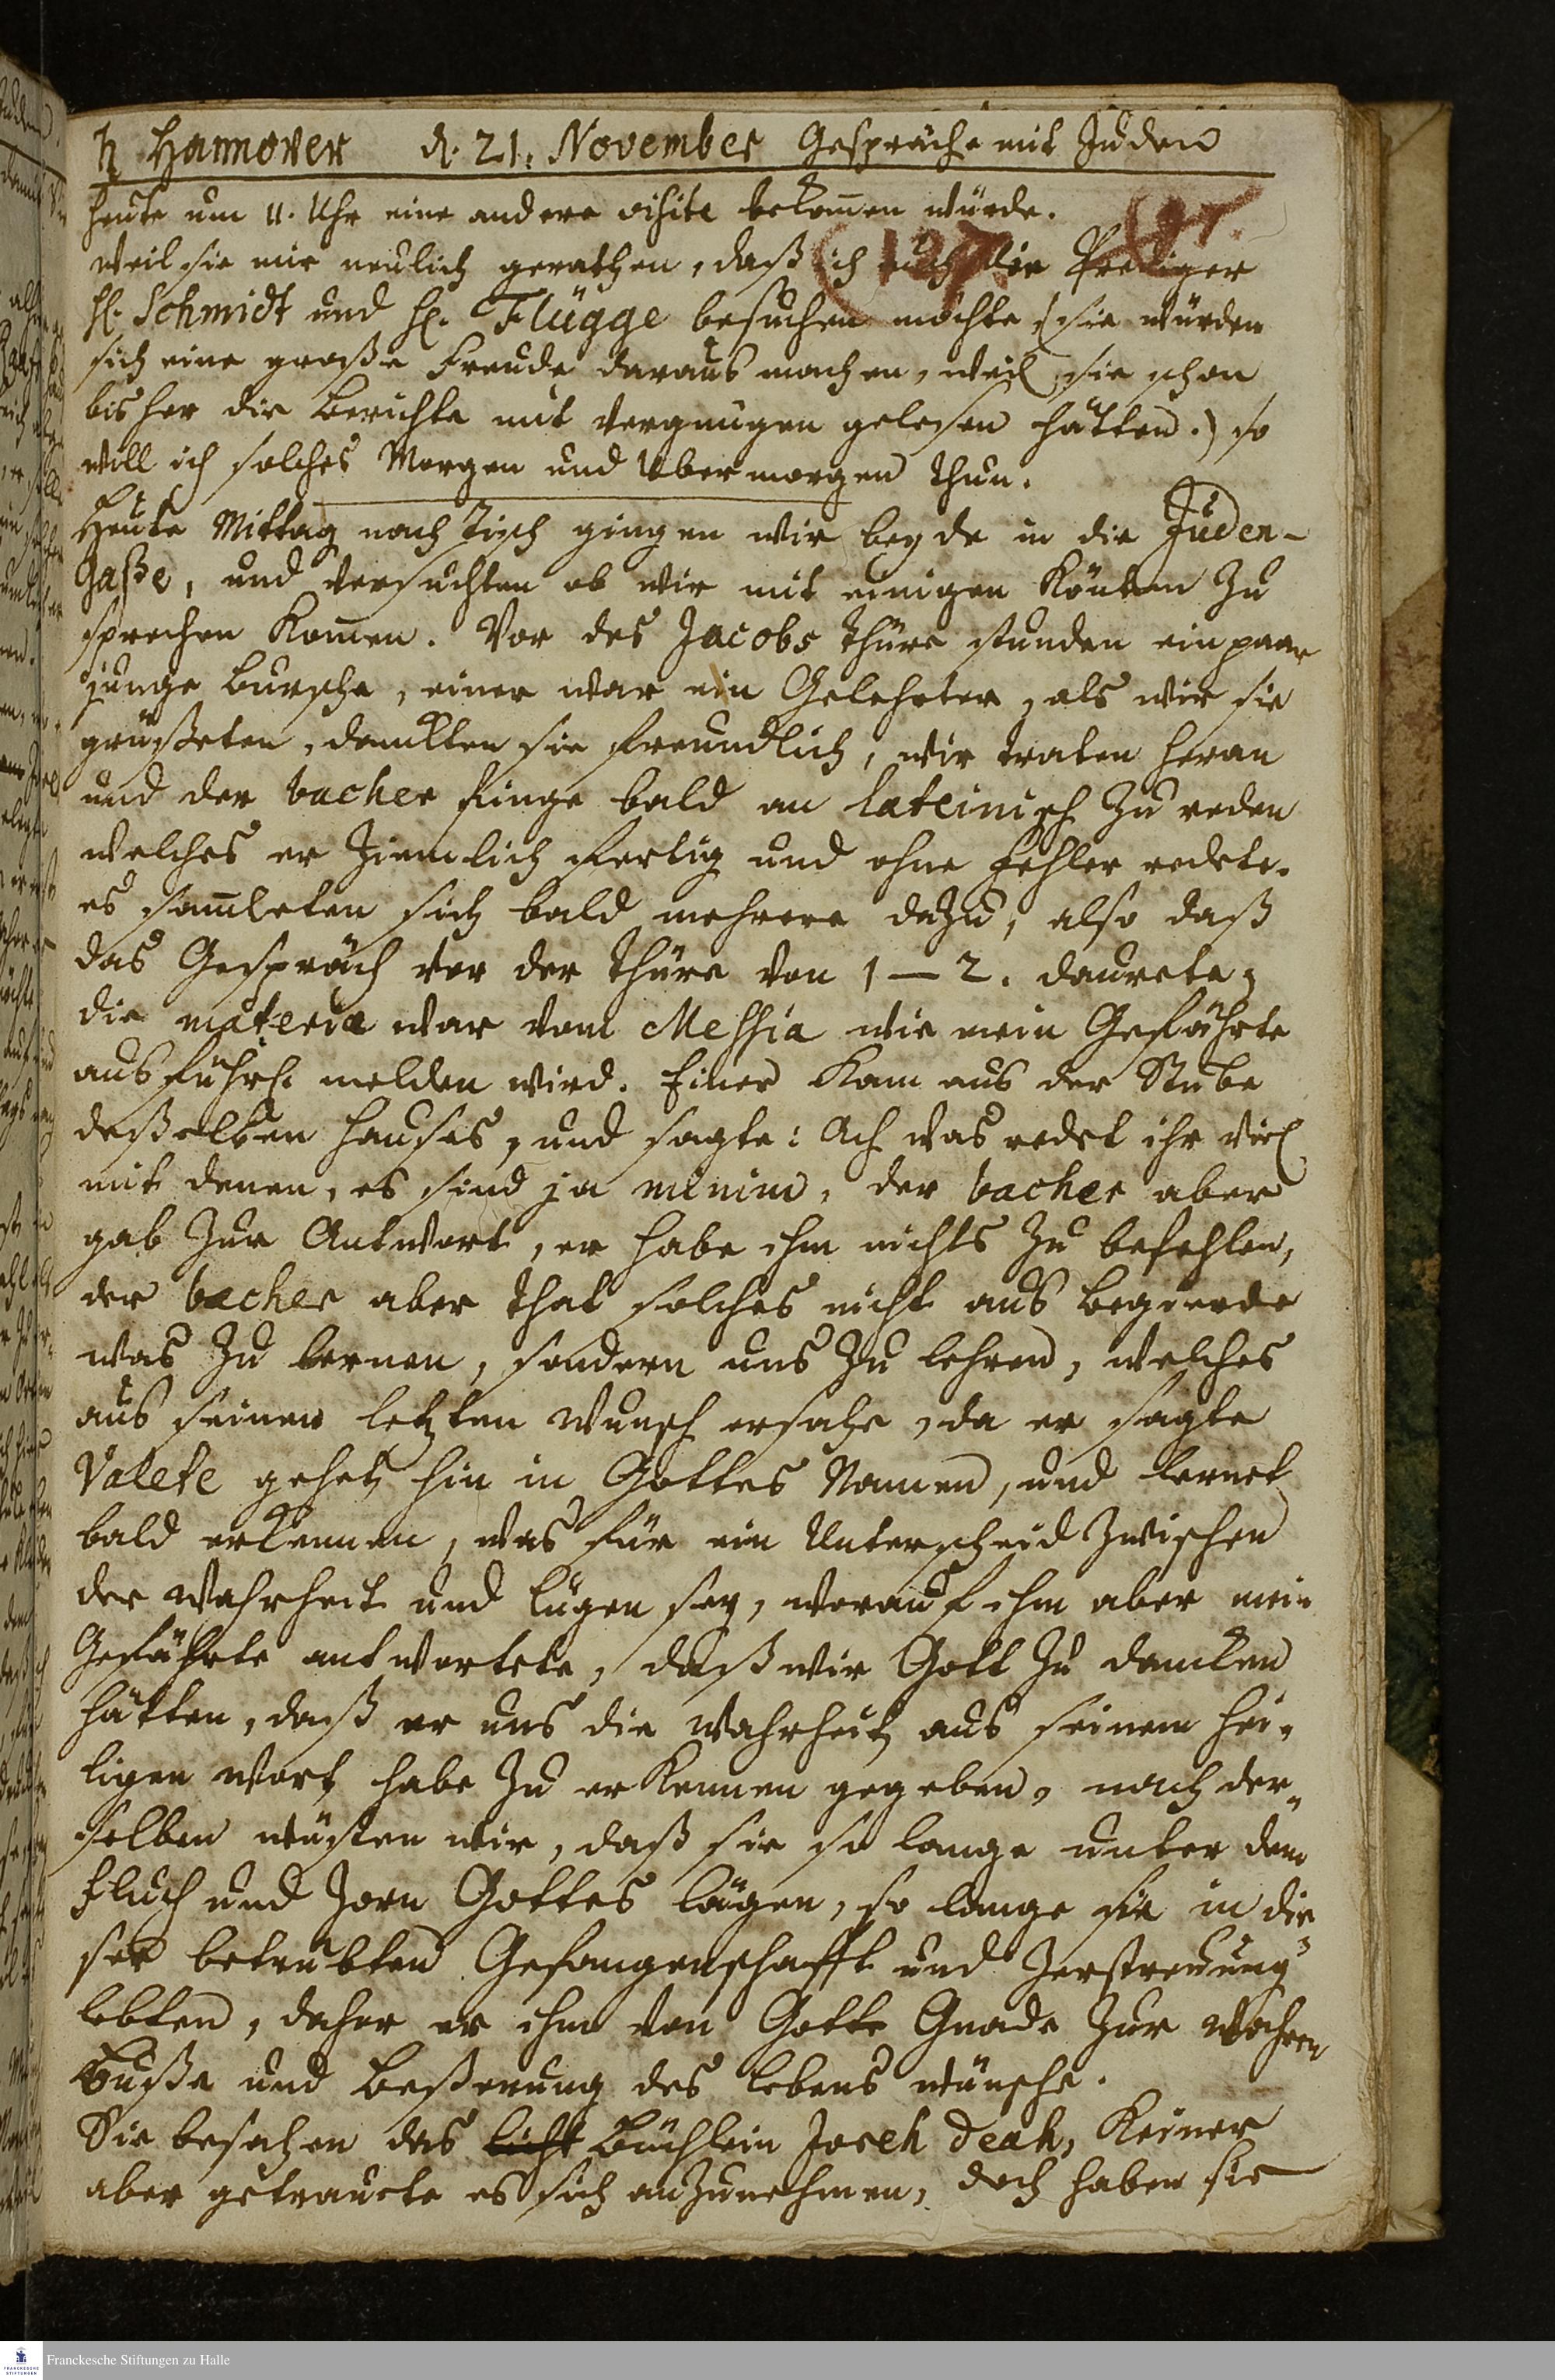 ♄ Hannover d. 21. November Gespräche mit Juden
heute um 11. Uhr eine andere visite bekom̄en würde.
(127. 97.
weil sie mir neulich gerathen, daß ich auch die Prediger
H. Schmidt und H. Flügge besuchen möchte, (sie würden
sich eine große Freude daraus machen, weil sie schon
bisher die Berichte mit Vergnügen gelesen hätten.) so
will ich solches Morgen und Ubermorgen thun.
Heute Mittag nach Tisch gingen wir beyde in die Juden-
Gaße, und versuchten ob wir mit einigen könten zu
sprechen kom̄en. Vor des Jacobs Thüre stunden ein paar
junge Bursche, einer war ein Gelehrter, als wir sie
grüßeten, danckten sie freundlich, wir traten heran
und der bacher finge bald an lateinisch zu reden
welches er ziemlich fertig und ohne Fehler redete.
es sam̄leten sich bald mehrere dazu, also daß
das Gespräch vor der Thüre von 1 — 2. daurete,
die materia war vom Messia wie mein Gefährte
ausführl. melden wird. Einer kam aus der Stube
deßelben Hauses, und sagte: Ach was redet ihr viel
mit denen, es sind ja minim, der bacher aber
gab zur Antwort, er habe ihm nichts zu befehlen,
der bacher aber that solches nicht aus Begierde
was zu lernen, sondern uns zu lehren, welches
aus seinem letzten Wunsch ersahe, da er sagte
Valete gehet hin in Gottes Namen, und lernet
bald erkennen, was für ein Unterscheid zwischen
der Wahrheit und Lügen sey, worauf ihm aber mein
Gefährte antwortete, daß wir Gott zu dancken
hätten, daß er uns die Wahrheit aus seinem hei-
ligen Wort habe zu erkennen gegeben, nach der-
selben wüsten wir, daß sie so lange unter dem
Fluch und Zorn Gottes lägen, so lange sie in die-
ser betrübten Gefangenschafft und Zerstreuung
lebten, daher er ihm von Gott Gnade zur wahren
Buße und Beßerung des Lebens wünsche.
Sie besahen das licht Büchlein Joreh deah, Keiner
aber getrauete es sich anzunehmen, doch haben sie
Franckesche Stiftungen zu Halle